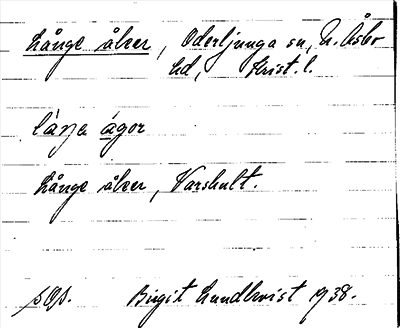 Långe åker, Oderljunga sn, N. Åsbo
hd, Krist. l.
låŋa ágor
Långe åker, Varshult.
Birgit Lundkvist 1938.